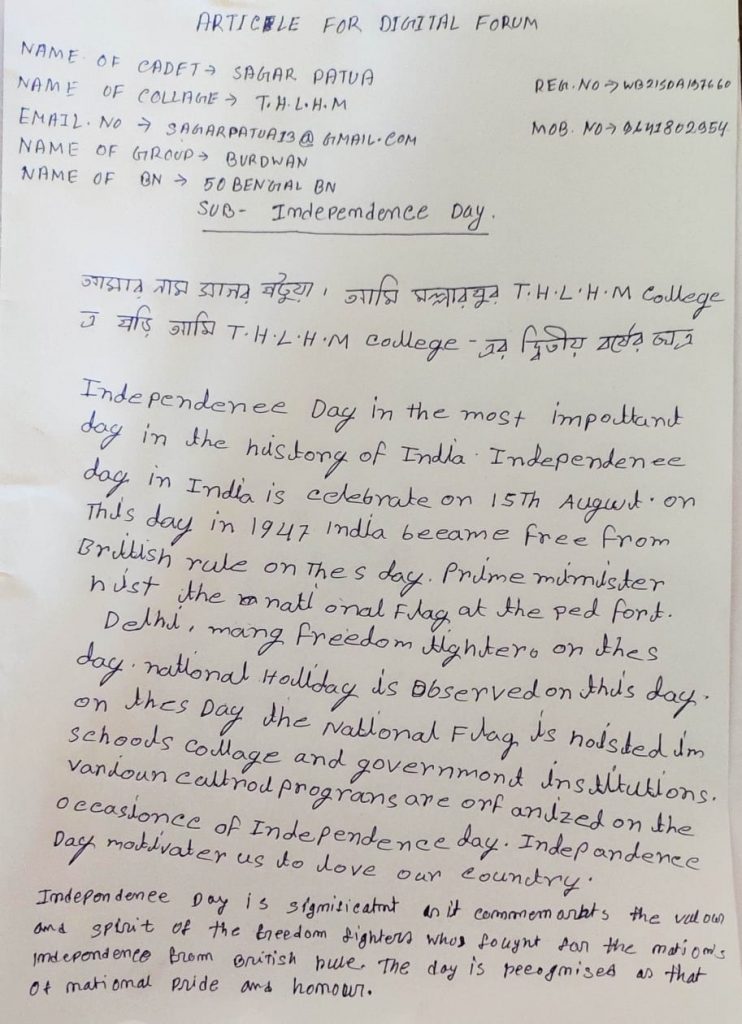 ARTICLE FOR DIGITAL FORUM
NAME OF CADET → SAGAR PATUA
NAME OF COLLAGE → T.H.L.H.M
REG.NO → WB21SDA157660
EMAIL.NO → SAGARPATUA13@GMAIL.COM
MOB. NO →
NAME OF GROUP → BURDWAN
NAME OF BN → 50 BENGAL BN
SUB- Independence Day.
আমার নাম সাগর পটুয়া। আমি মল্লারপুর T.H.L.H.M College
এ পড়ি আমি T.H.L.H.M college - এর দ্বিতীয় বর্ষের ছাত্র
Independenee Day in the most impottant
day in the history of India. Independenee
day in India is celebrate on 15TH August. on
This day in 1947 india beeame free from
British rule on thes day. Prime minister
hist the national Flag at the Red fort.
Delhi, mang freedom tighters on thes
day. national Holliday is observed on this day.
on thes Day the National Flag is hoisted in
schools collage and governmond institutions.
varioun caltrod programs are orf anized on the
occasionce of Independence day. Indepandence
Day motivater us to love our country.
Independenee Day is significatnt as it commemorates the valour
and spirit of the freedom fighters whos fought for the nation's
independence from British rule. The day is peeognised as that
of national pride and honour.